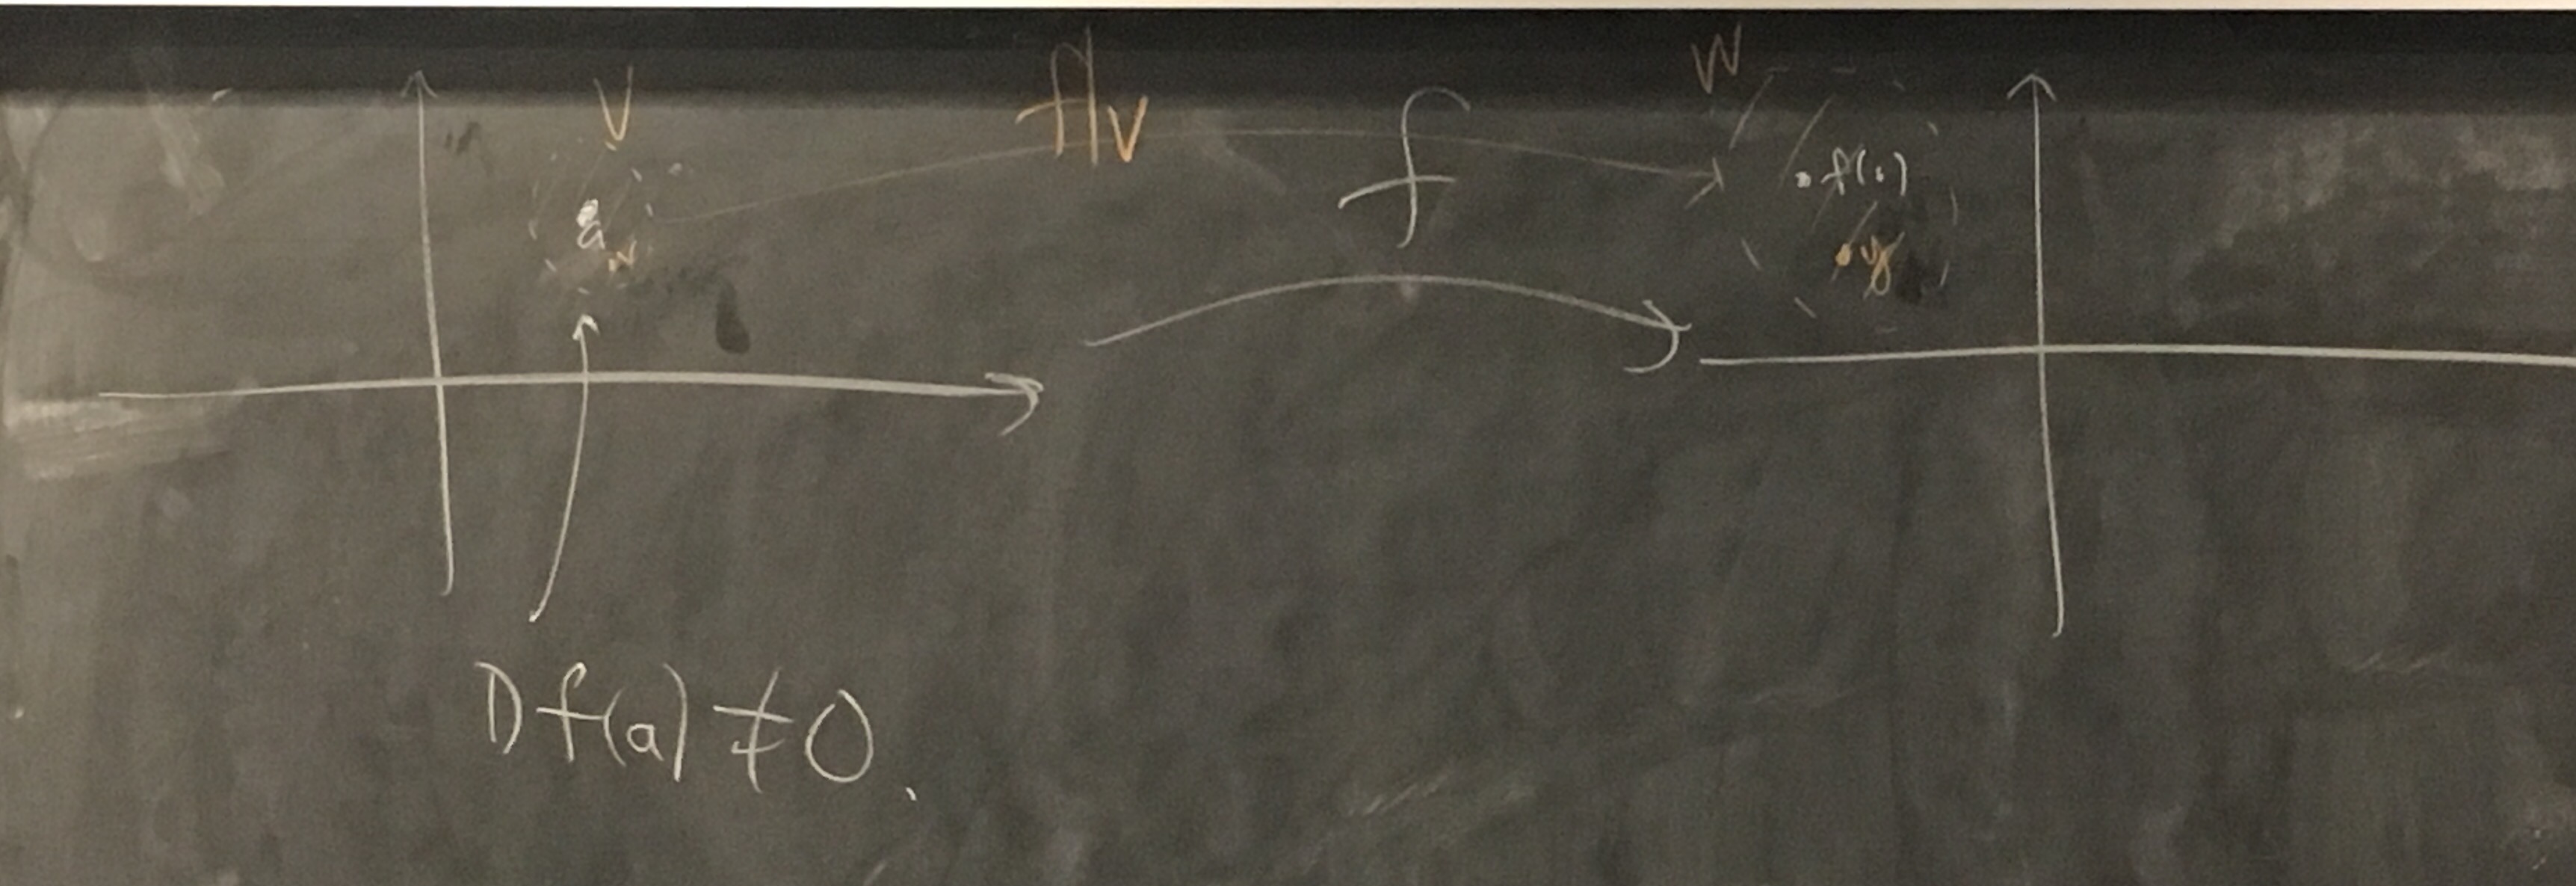 V
f|v
f
W
a
f(a)
y
Df(a) ≠ 0.